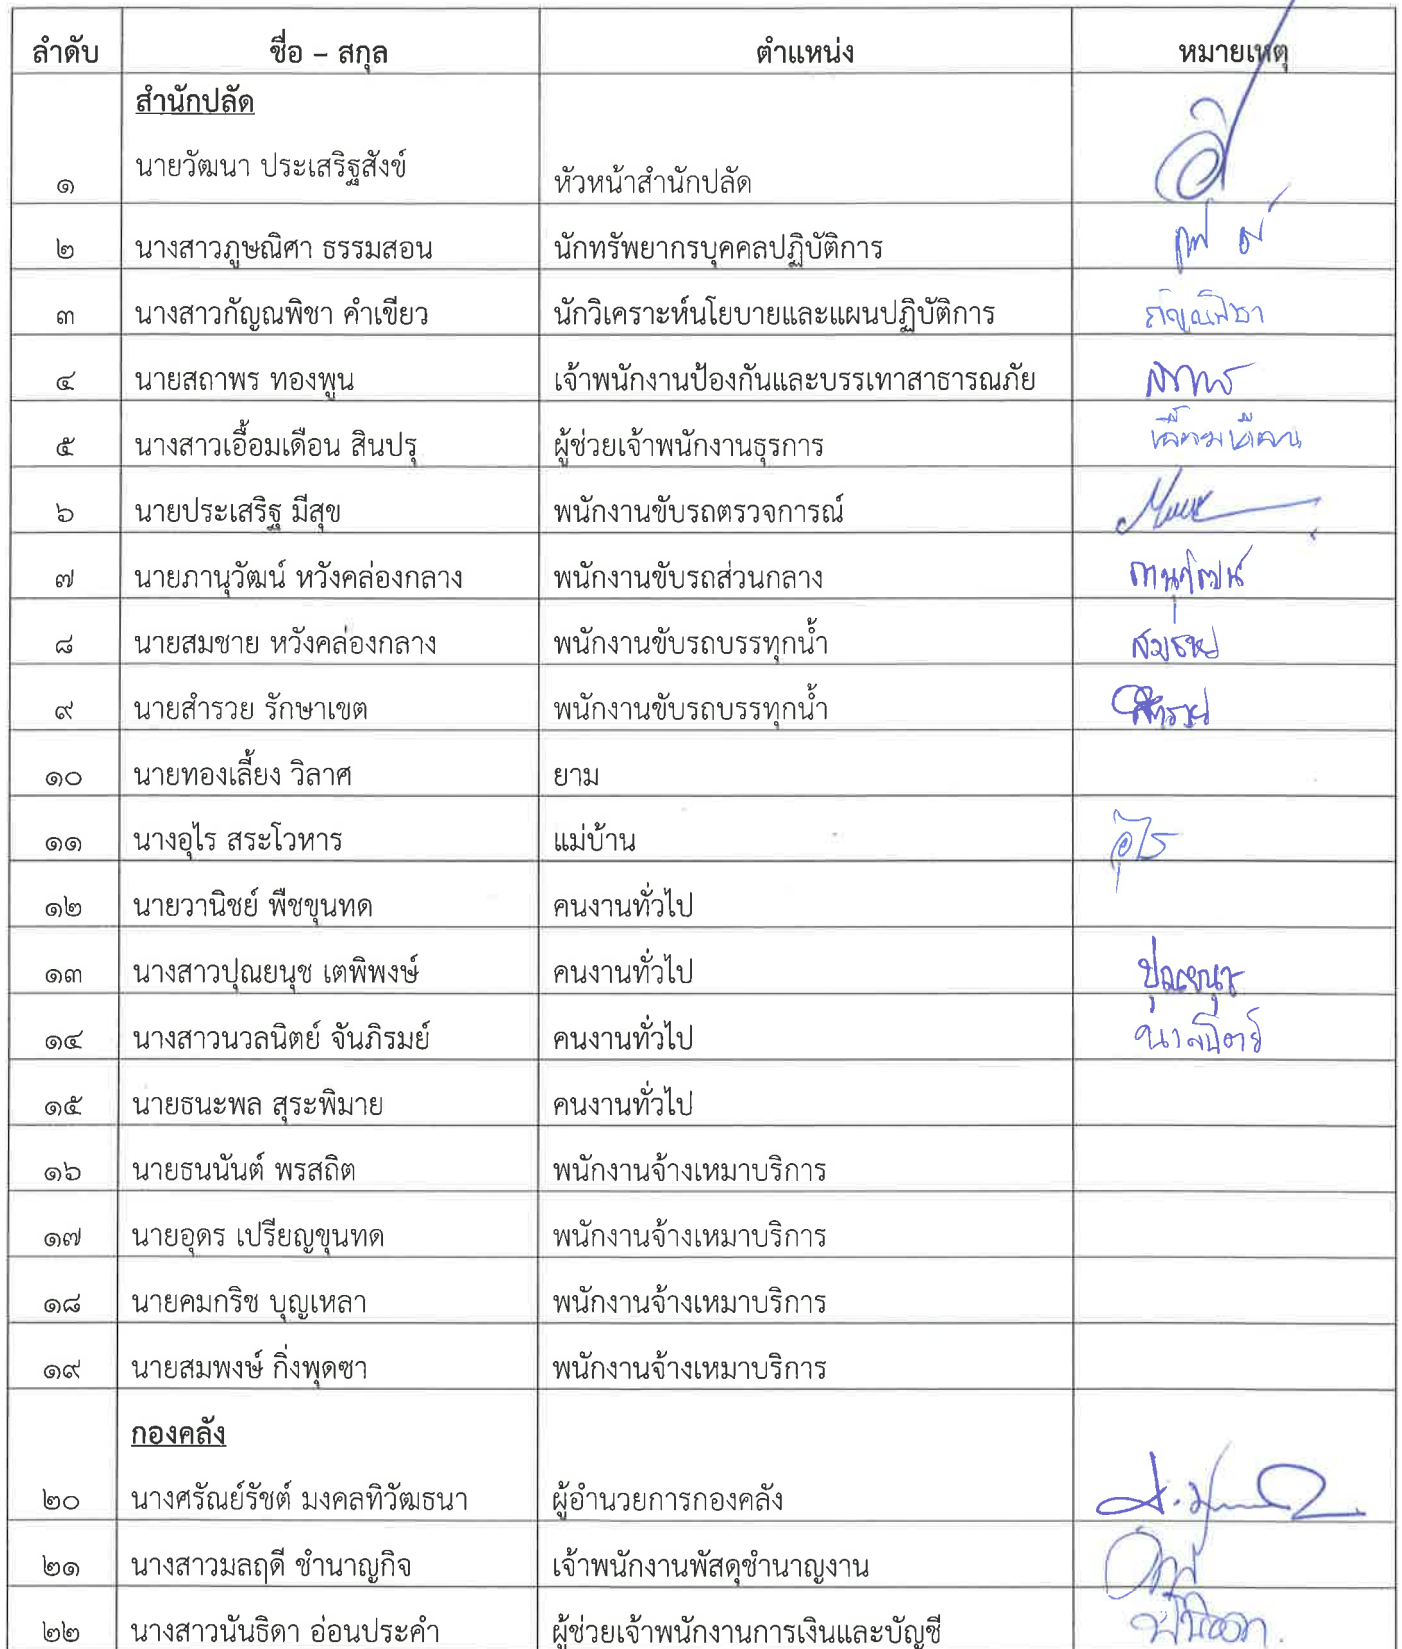 ลำดับ ชื่อ – สกุล ตำแหน่ง หมายเหตุ
สำนักปลัด
๑ นายวัฒนา ประเสริฐสังข์ หัวหน้าสำนักปลัด
๒ นางสาวภูษณิศา ธรรมสอน นักทรัพยากรบุคคลปฏิบัติการ
๓ นางสาวกัญณพิชา คำเขียว นักวิเคราะห์นโยบายและแผนปฏิบัติการ กัญณพิชา
๔ นายสถาพร ทองพูน เจ้าพนักงานป้องกันและบรรเทาสาธารณภัย สถาพร
๕ นางสาวเอื้อมเดือน สินปรุ ผู้ช่วยเจ้าพนักงานธุรการ เอื้อมเดือน
๖ นายประเสริฐ มีสุข พนักงานขับรถตรวจการณ์
๗ นายภานุวัฒน์ หวังคล่องกลาง พนักงานขับรถส่วนกลาง ภานุวัฒน์
๘ นายสมชาย หวังคล่องกลาง พนักงานขับรถบรรทุกน้ำ สมชาย
๙ นายสำรวย รักษาเขต พนักงานขับรถบรรทุกน้ำ สำรวย
๑๐ นายทองเลี้ยง วิลาศ ยาม
๑๑ นางอุไร สระโวหาร แม่บ้าน อุไร
๑๒ นายวานิชย์ พืชขุนทด คนงานทั่วไป
๑๓ นางสาวปุณยนุช เตพิพงษ์ คนงานทั่วไป ปุณยนุช
๑๔ นางสาวนวลนิตย์ จันภิรมย์ คนงานทั่วไป นวลนิตย์
๑๕ นายธนะพล สุระพิมาย คนงานทั่วไป
๑๖ นายธนนันต์ พรสถิต พนักงานจ้างเหมาบริการ
๑๗ นายอุดร เปรียญขุนทด พนักงานจ้างเหมาบริการ
๑๘ นายคมกริช บุญเหลา พนักงานจ้างเหมาบริการ
๑๙ นายสมพงษ์ กิ่งพุดซา พนักงานจ้างเหมาบริการ
กองคลัง
๒๐ นางศรัณย์รัชต์ มงคลทิวัฒธนา ผู้อำนวยการกองคลัง
๒๑ นางสาวมลฤดี ชำนาญกิจ เจ้าพนักงานพัสดุชำนาญงาน
๒๒ นางสาวนันธิดา อ่อนประคำ ผู้ช่วยเจ้าพนักงานการเงินและบัญชี นันธิดา